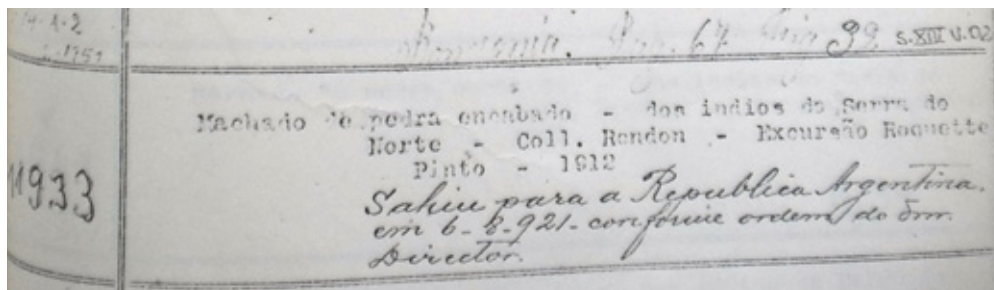 14-1-2
1751
Pag. 67 92 S.XIV V.02
11933
Machado de pedra encabado - dos indios da Serra do
Norte - Coll. Rondon - Excursão Roquette
Pinto - 1912
Sahiu para a Republica Argentina.
em 6-8-921-conforme ordem do Snr.
Director.